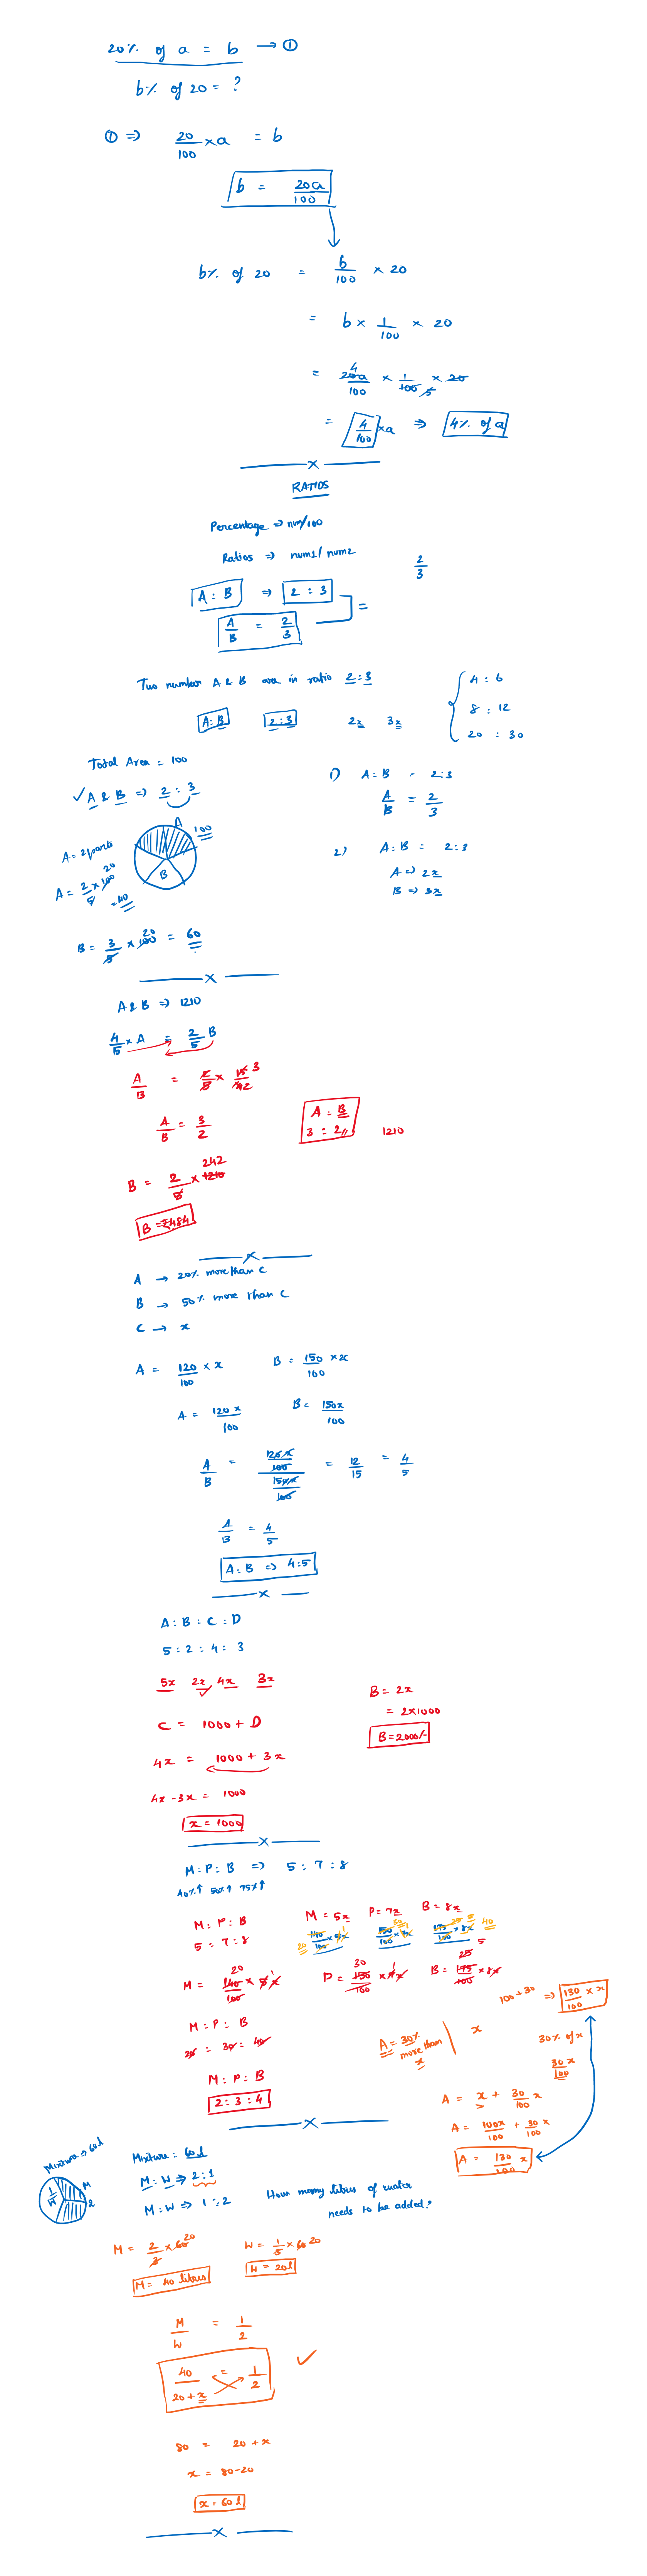 20% of a = b → ①
b% of 20 = ?
① ⇒ 20/100 × a = b
b = 20a/100
b% of 20 = b/100 × 20
= b × 1/100 × 20
= 20a/100 × 1/100 × 20 4 5
= 4/100 × a ⇒ 4% of a
RATIOS
Percentage ⇒ num/100
Ratios ⇒ num1/num2
2/3
A : B ⇒ 2 : 3
A/B = 2/3
Two number A & B are in ratio 2:3
4 : 6
8 : 12
20 : 30
A:B 2:3 2x 3x
Total Area = 100
✓ A & B ⇒ 2 : 3
A = 2 parts
A
B
100
A = 2/5 × 100 20
= 40
1) A:B = 2:3
A/B = 2/3
2) A:B = 2:3
A ⇒ 2x
B ⇒ 3x
B = 3/5 × 100 20 = 60
A & B ⇒ 1210
4/15 × A = 2/5 B
A/B = 2/5 × 15/4 3 2
A/B = 3/2
A : B
3 : 2
1210
B = 2/5 × 1210 242
B = ₹484
A → 20% more than C
B → 50% more than C
C → x
A = 120/100 × x B = 150/100 × x
A = 120x/100 B = 150x/100
A/B = 120x/100 / 150x/100 = 12/15 = 4/5
A/B = 4/5
A : B ⇒ 4:5
A : B : C : D
5 : 2 : 4 : 3
5x 2x 4x 3x
C = 1000 + D
4x = 1000 + 3x
4x - 3x = 1000
x = 1000
B = 2x
= 2×1000
B = 2000/-
M : P : B ⇒ 5 : 7 : 8
40%↑ 50%↑ 75%↑
M : P : B
5 : 7 : 8
M = 5x P = 7x B = 8x
M = 140/100 × 5x 20 P = 150/100 × 7x 30 B = 175/100 × 8x 25
M : P : B
20 : 30 : 40
M : P : B
2 : 3 : 4
A = 30% more than x
x
100 + 30 ⇒ 130/100 × x
30% of x
30/100 x
A = x + 30/100 x
A = 100x/100 + 30/100 x
A = 130/100 x
Mixture ⇒ 60l
M
W
1
2
Mixture : 60 l
M : W ⇒ 2 : 1
M : W ⇒ 1 : 2
How many litres of water
needs to be added?
M = 2/3 × 60 20 W = 1/3 × 60 20
M = 40 litres W = 20 l
M/W = 1/2
40/20+x = 1/2 ✓
80 = 20 + x
x = 80 - 20
x = 60 l